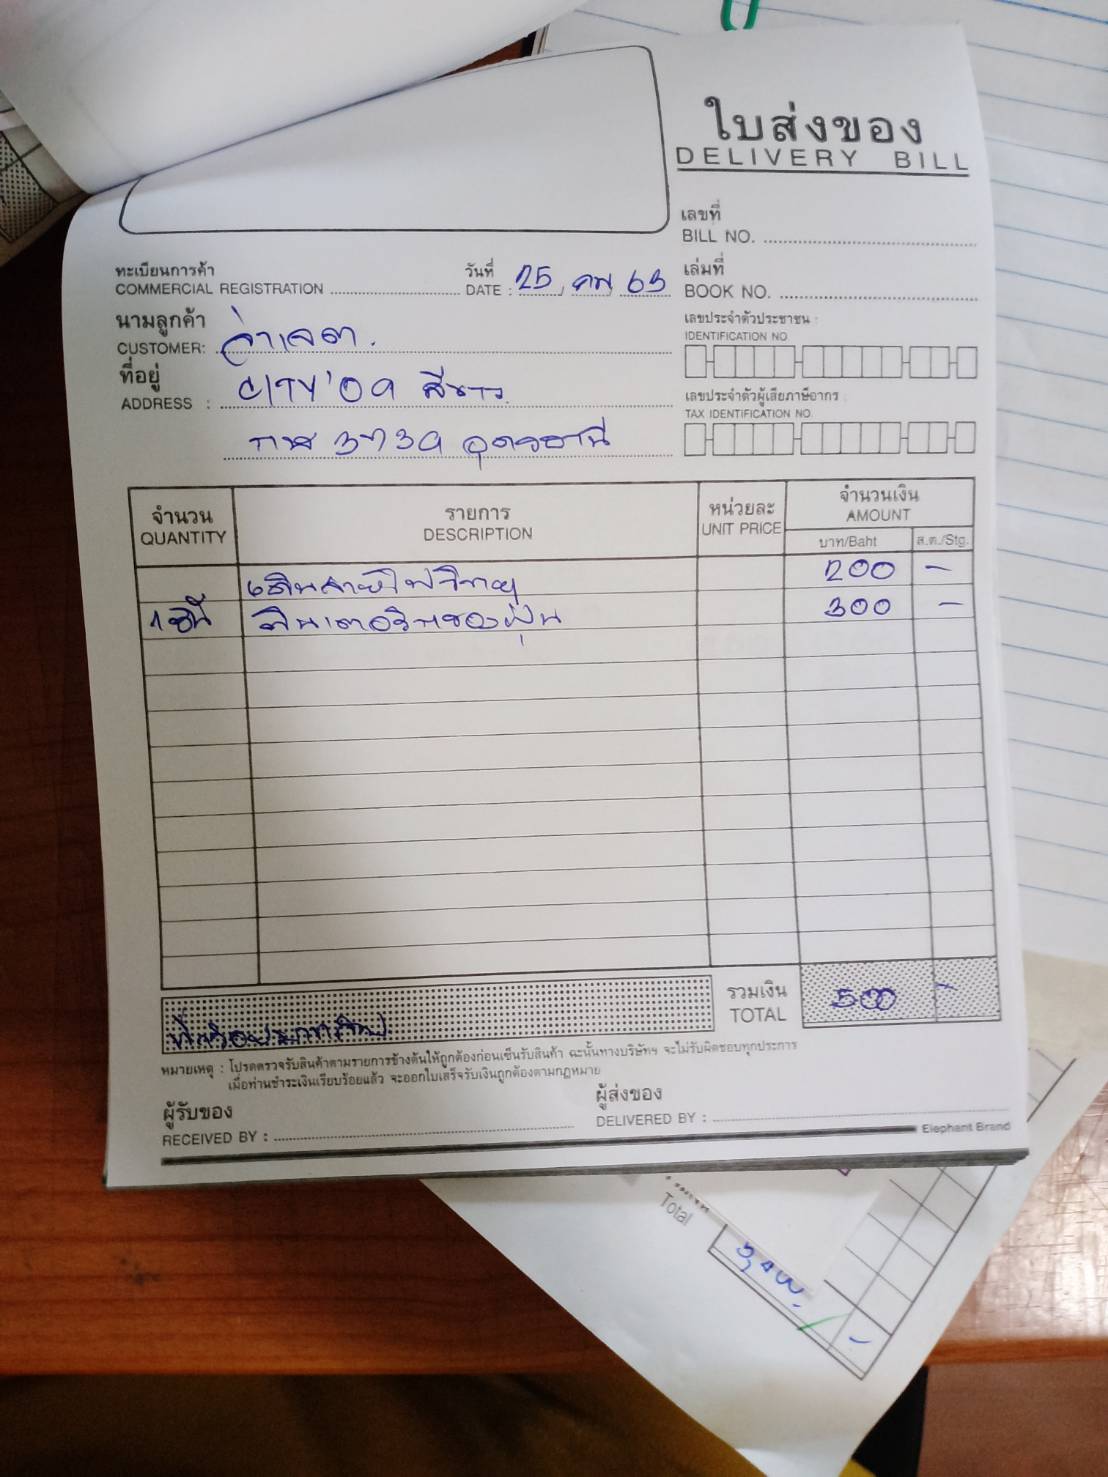 ใบส่งของ
DELIVERY BILL
เลขที่
BILL NO.
ทะเบียนการค้า
COMMERCIAL REGISTRATION
วันที่
DATE : 25 / กพ / 63
เล่มที่
BOOK NO.
นามลูกค้า
CUSTOMER: จ่าเจตา.
ที่อยู่
ADDRESS : CITY'09 สีขาว
กษ 3739 อุดรธานี
เลขประจำตัวประชาชน :
IDENTIFICATION NO
เลขประจำตัวผู้เสียภาษีอากร :
TAX IDENTIFICATION NO.
จำนวน รายการ หน่วยละ จำนวนเงิน
QUANTITY DESCRIPTION UNIT PRICE AMOUNT
บาท/Baht ส.ต./Stg.
เดินสายไฟวิทยุ 200 -
300 -
รวมเงิน
TOTAL 500 -
หมายเหตุ : โปรดตรวจรับสินค้าตามรายการข้างต้นให้ถูกต้องก่อนเซ็นรับสินค้า ฉะนั้นทางบริษัทฯ จะไม่รับผิดชอบทุกประการ
เมื่อท่านชำระเงินเรียบร้อยแล้ว จะออกใบเสร็จรับเงินถูกต้องตามกฎหมาย
ผู้รับของ
RECEIVED BY :
ผู้ส่งของ
DELIVERED BY :
Elephant Brand
Total